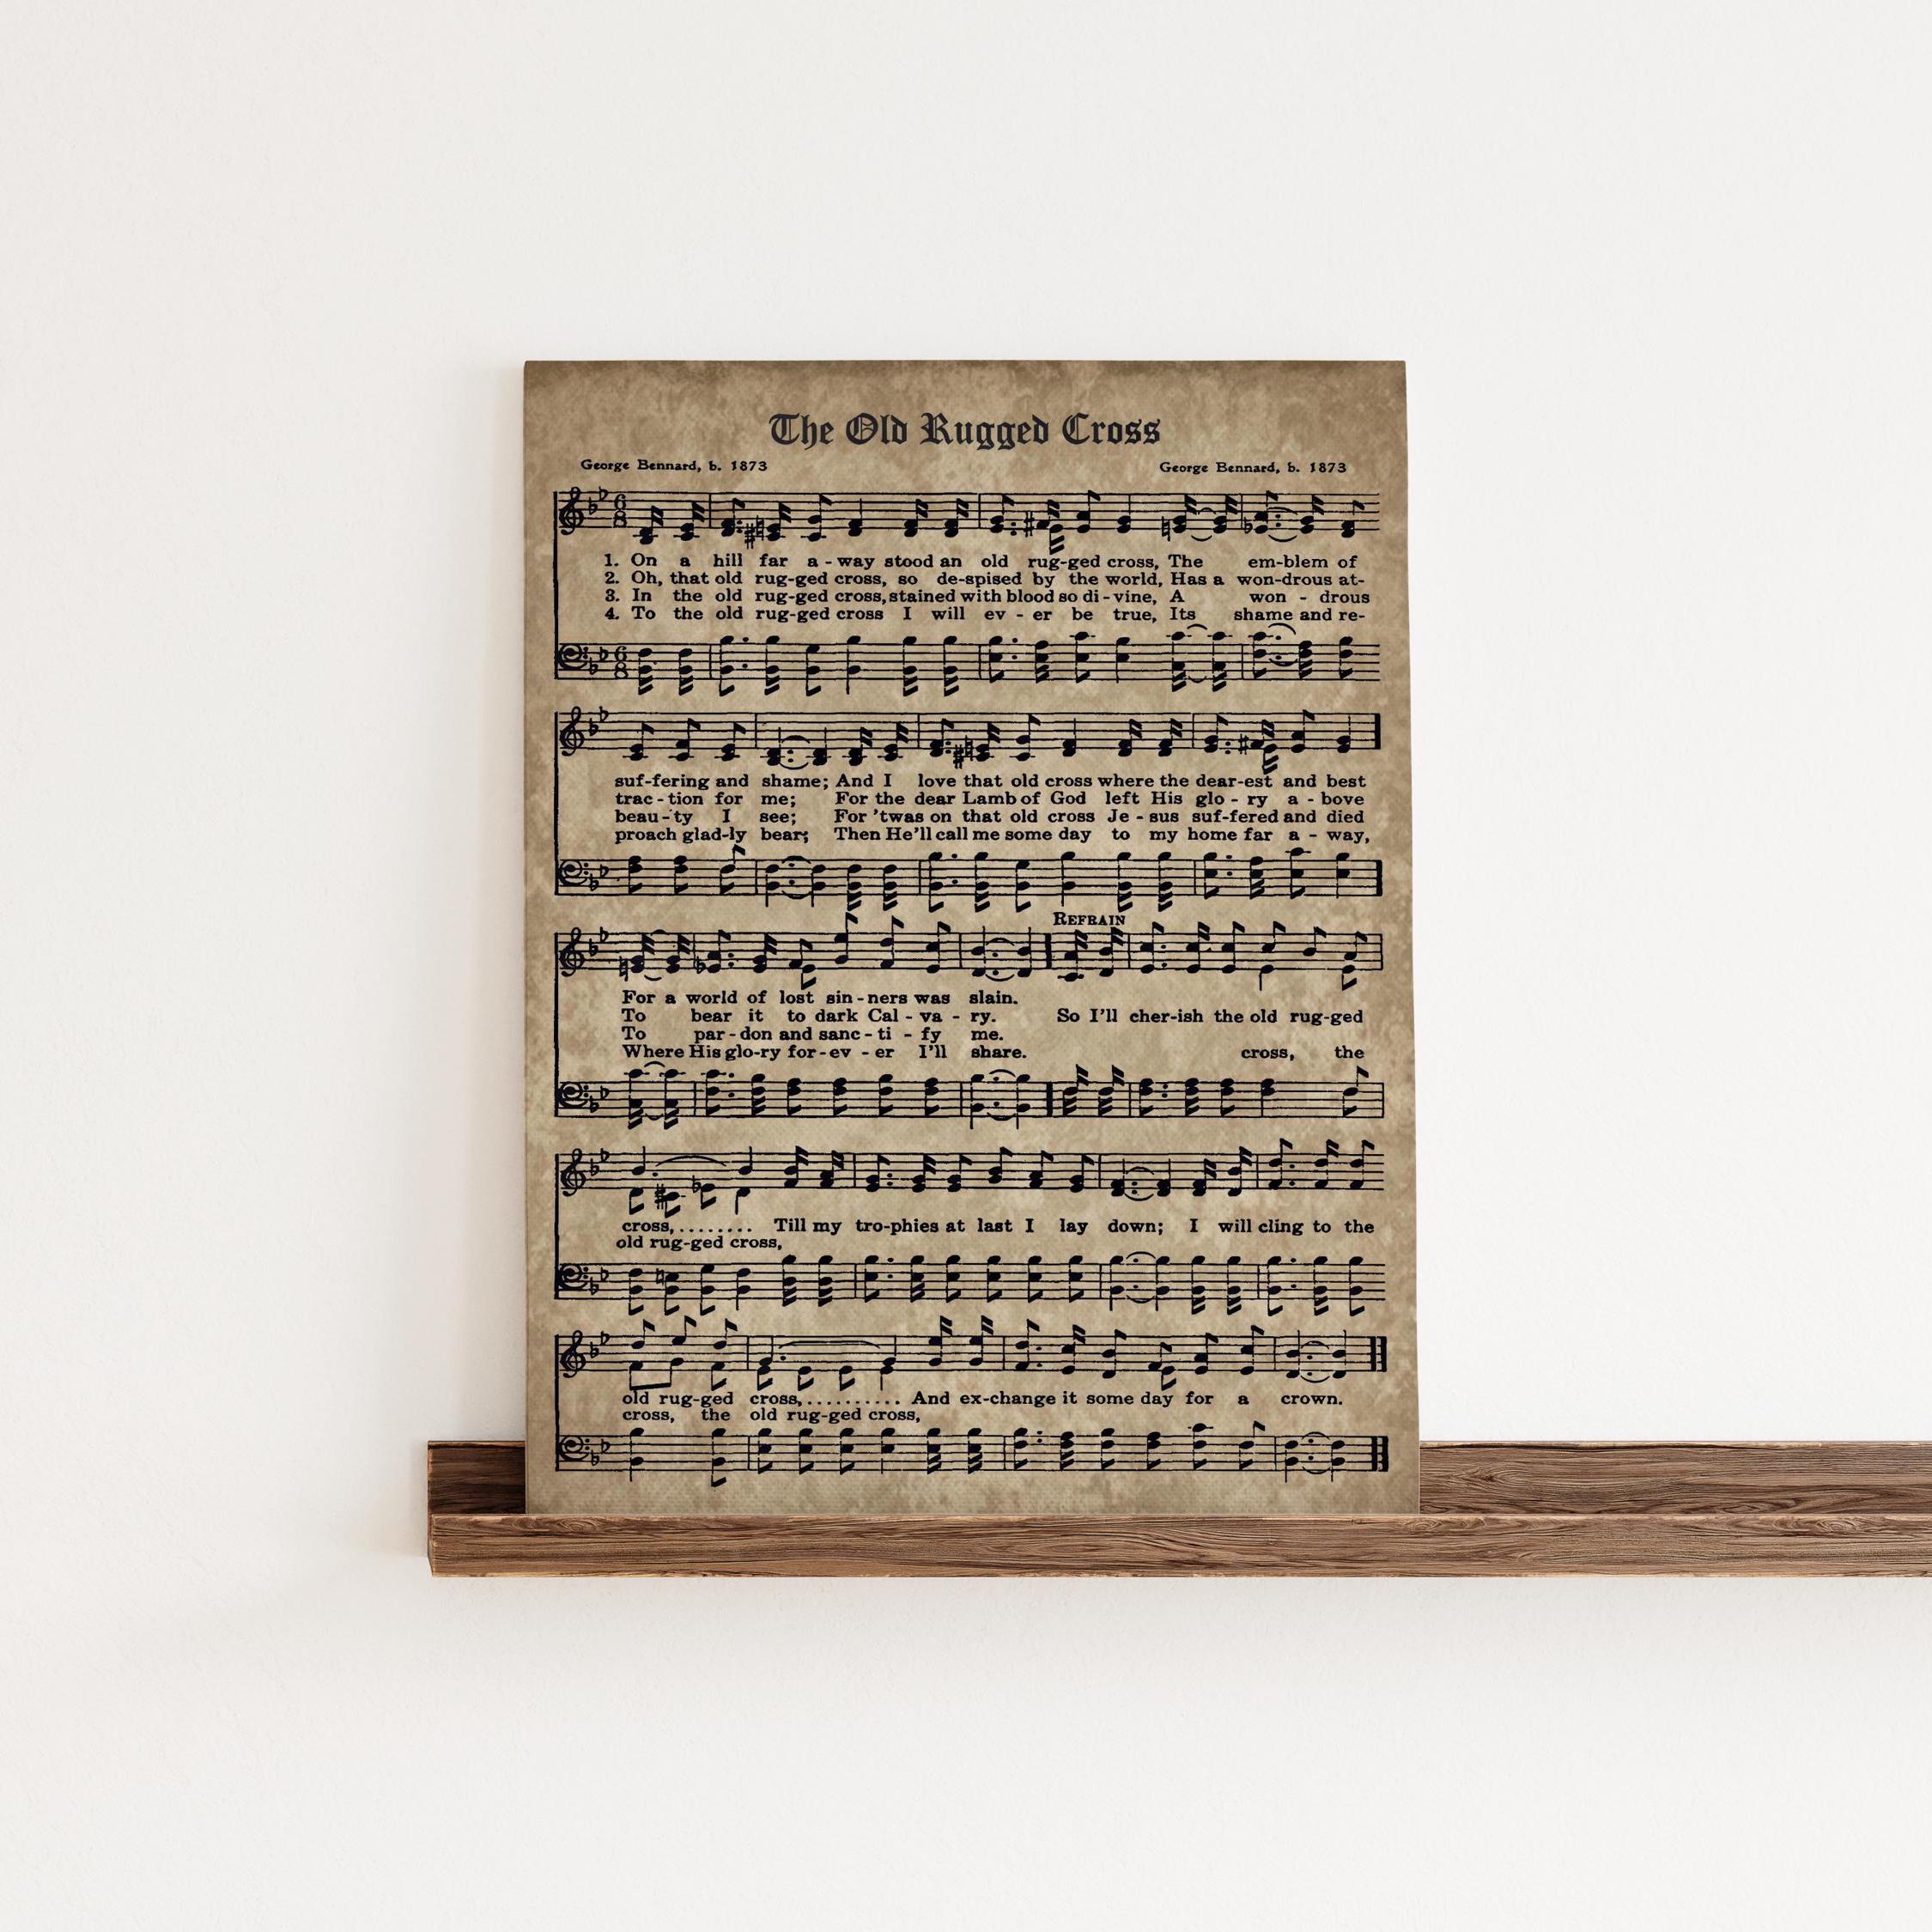 The Old Rugged Cross
George Bennard, b. 1873 George Bennard, b. 1873
1. On a hill far a-way stood an old rug-ged cross, The em-blem of
2. Oh, that old rug-ged cross, so de-spised by the world, Has a won-drous at-
3. In the old rug-ged cross, stained with blood so di-vine, A won-drous
4. To the old rug-ged cross I will ev-er be true, Its shame and re-
suf-fering and shame; And I love that old cross where the dear-est and best
trac-tion for me; For the dear Lamb of God left His glo-ry a-bove
beau-ty I see; For 'twas on that old cross Je-sus suf-fered and died
proach glad-ly bear; Then He'll call me some day to my home far a-way,
REFRAIN
For a world of lost sin-ners was slain.
To bear it to dark Cal-va-ry. So I'll cher-ish the old rug-ged
To par-don and sanc-ti-fy me.
Where His glo-ry for-ev-er I'll share. cross, the
cross,........ Till my tro-phies at last I lay down; I will cling to the
old rug-ged cross,
old rug-ged cross,.......... And ex-change it some day for a crown.
cross, the old rug-ged cross,